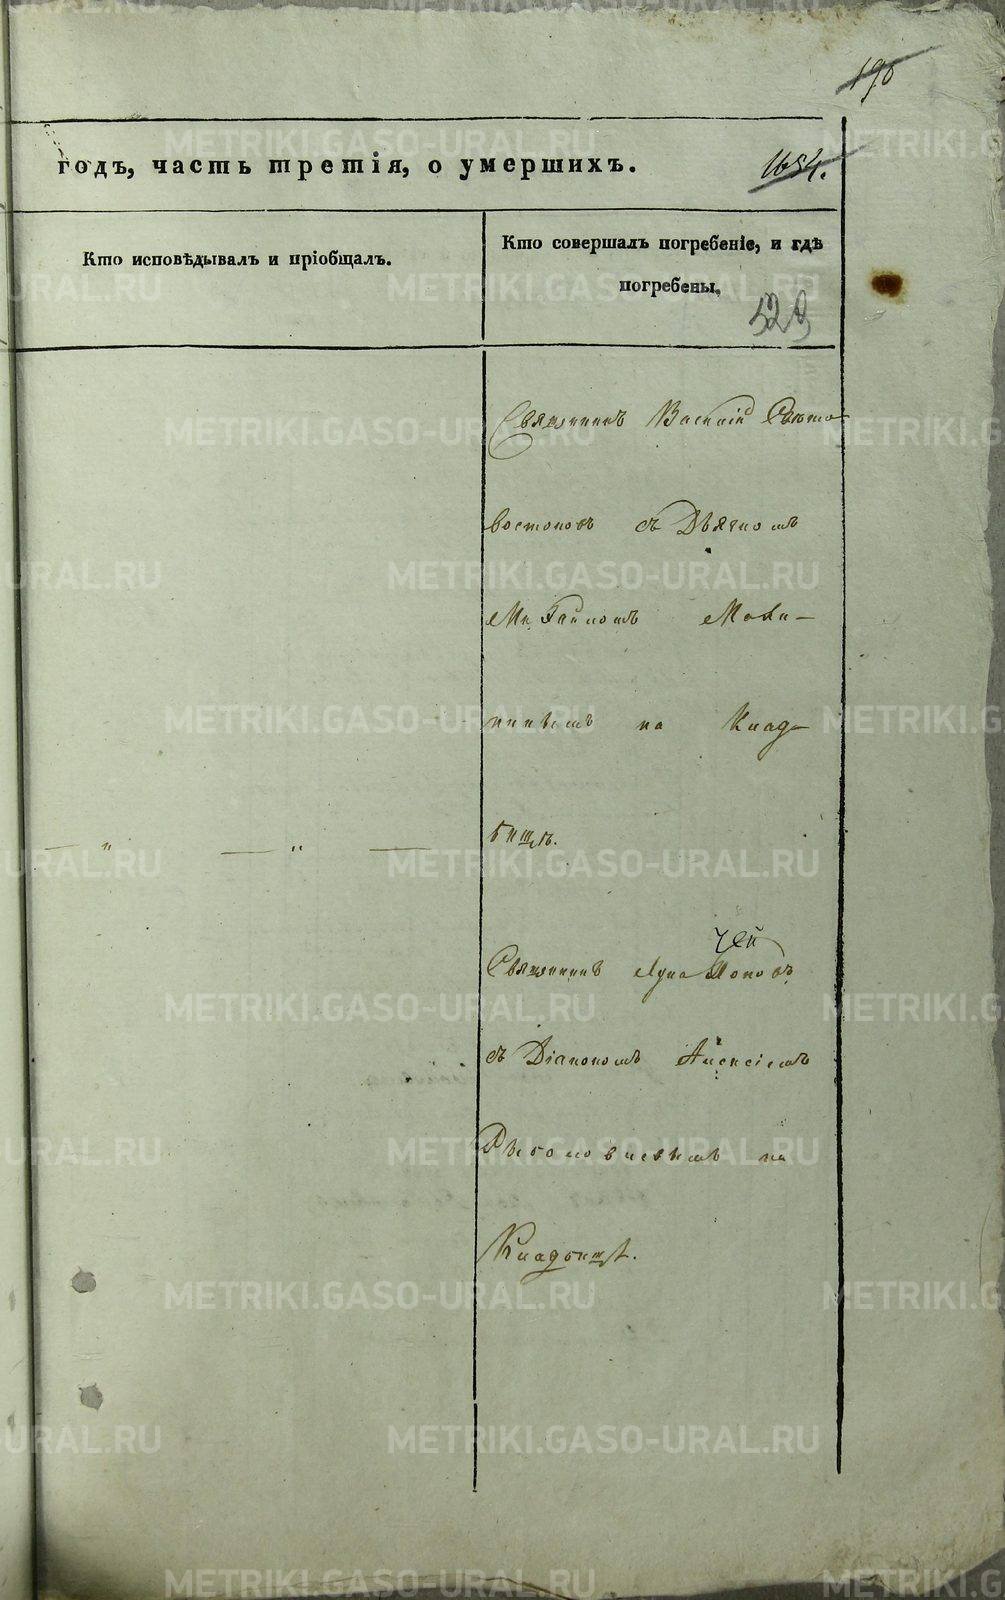 190
годъ, часть третія, о умершихъ.
1654.
Кто исповѣдывалъ и пріобщалъ.
Кто совершалъ погребеніе, и гдѣ
погребены.
529
Священникъ Василій Свѣто
востоковъ съ Дьячкомъ
Михаиломъ
на Клад-
бищѣ.
— „ — „ —
Священникъ Лука
съ Діакономъ Алексіемъ
на
Кладбищѣ.
METRIKI.GASO-URAL.RU